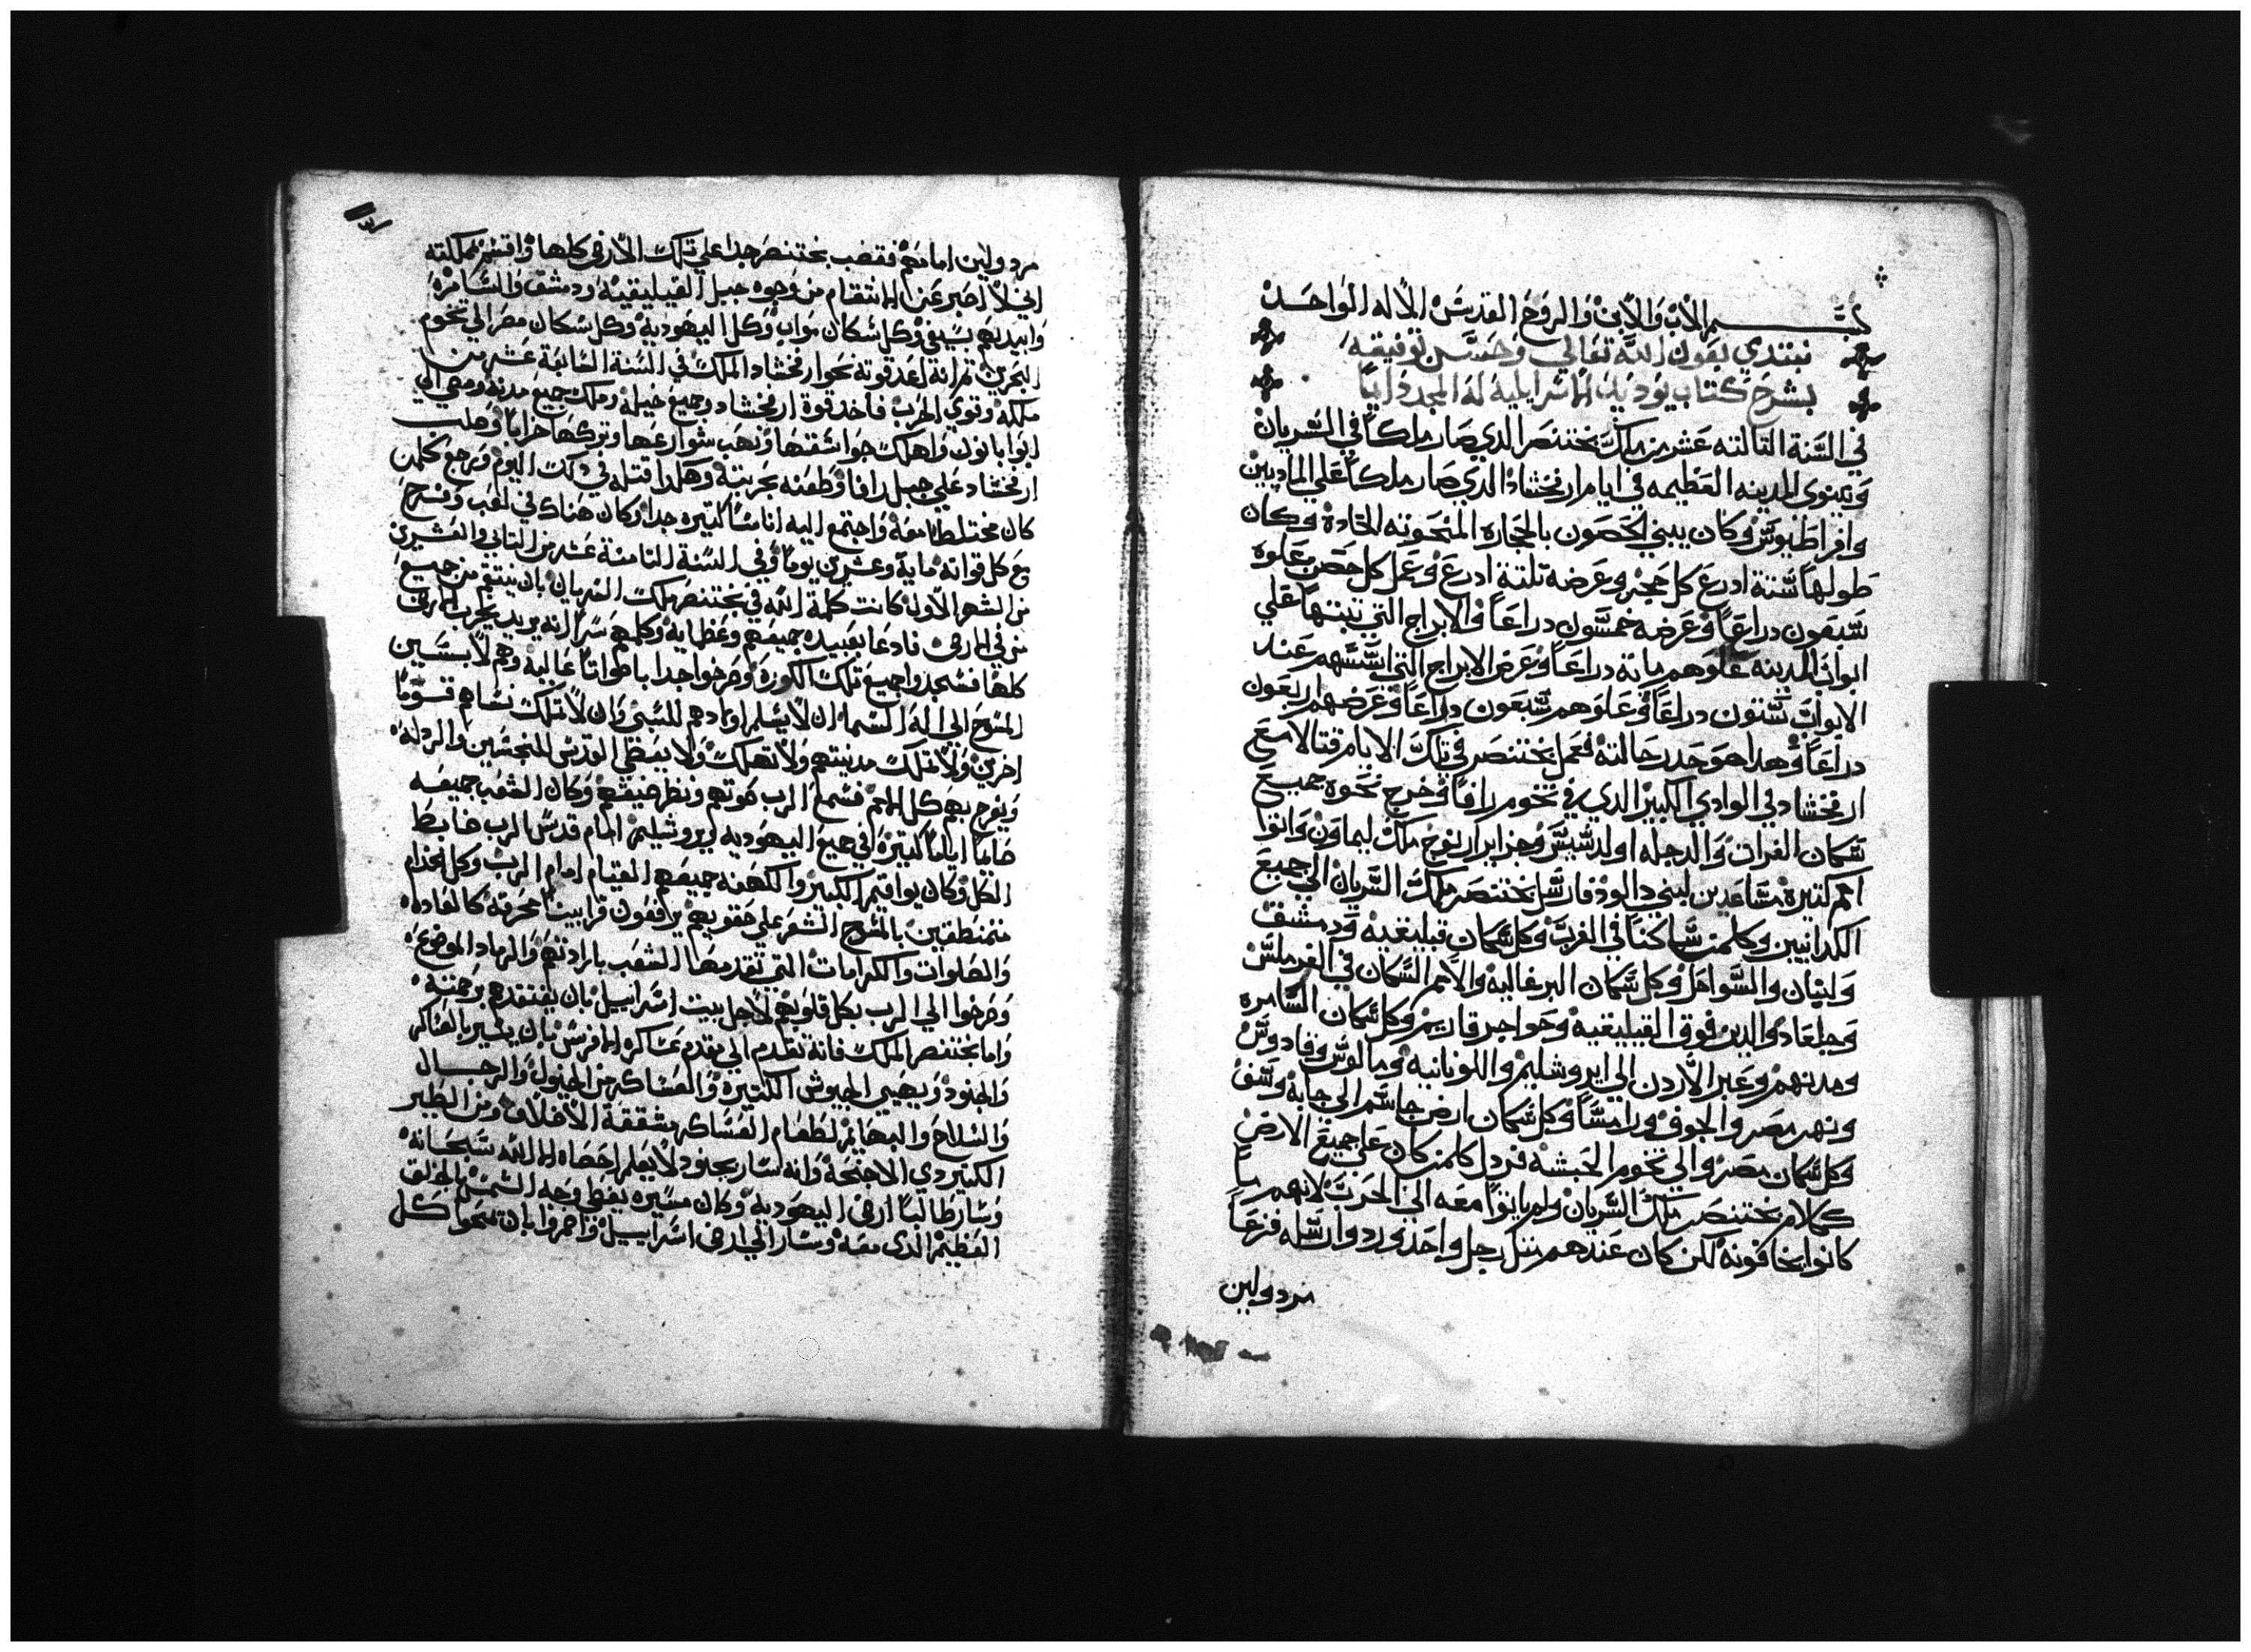 بسم الاب والابن والروح القدس الاله الواحد
نبتدي بعون الله تعالي وحسن توفيقه
بشرح كتاب يوديت الاسرايليه له المجد دايما
في السنة التالته عشر من ملك بختنصر الدي صار ملكا في السريان
ونينوي المدينه العظيمه في ايام ارفخشاد الدي صار ملكا علي الماديين
وافراطيوس وكان يبني الحصون بالحجاره المنحوته الحاده وكان
طولها ستة ادرع كل حجر وعرضه تلتة ادرع وعمل كل حصن علوه
سبعون دراعا وعرضه خمسون دراعا والابراج التي تبنتها علي
ابواب المدينه علوهم ماية دراعا وعرض الابراج التي اسسهم عند
الابواب ستون دراعا وعلوهم سبعون دراعا وعرضهم اربعون
دراعا وهدا هو حدر حالته فعمل بختنصر في تلك الايام قتالا مع
ارفخشاد في الوادي الكبير الدي في تخوم رافا وخرج نحوه جميع
سكان الفرات والدجله اولدسيس وجزاير اريوخ ملك ليماون واتوا
امم كتيرة مساعدين لبني دالود فارسل بختنصر ملك السريان الي جميع
الكدانيين وكلمن ساكنا في الغرب وكل سكان قيليقيه ودمشق
ولبنان والسواحل وكل سكان البرغاليه والامم السكان في الغرملس
وجلعاد والدين فوق القيليقية وحواجر قاريم وكل سكان السامره
ومدنهم وعبر الاردن الي ايروشليم واللونانيه ومالوس وقادوس
ونهر مصر والجوف ورامسا وكل سكان ارض جاسم الي جابة وسف
وكل سكان مصر والي تخوم الحبشه فردل كلمن كان علي جميع الارض
كلام بختنصر ملك السريان ولم ياتوا معه الي الحرب لانهم ما
كانوا يخافونه لكن كان عندهم متل رجل واحد وردوا رسله فزعا
مردولين
مردولين امامهم فغضب بختنصر جدا علي تلك الارض كلها واقسم بمملكته
اني لا اصبر عن الانتقام من وجوه جبل القيليقية ودمشق والسامرة
وابيدهم بسيفي وكل سكان مواب وكل اليهودية وكل سكان مصر الي تخوم
البحرين تم انه اعد قوته نحو ارفخشاد الملك في السنة السابعة عشر من
ملكه وقوي الحرب فاخد قوة ارفخشاد وجميع خيله وملك جميع مدنه ومضي الي
ابوابانون واهلك جواسقتها ونهب شوارعها وتركها خرابا وهلب
ارفخشاد علي جبل رافا وطعنه بحربته وهكدا قتله في دلك اليوم ورجع كلمن
كان مختلطا معه واجتمع اليه اناسا كتيره جدا وكان هناك في لعب وفرح
مع كل قواته ماية وعشرين يوما وفي السنة التامنة عشر من التاني والعشرين
من الشهر الاول كانت كلمة الله في بختنصر ملك السريان بان ينتقم من جميع
من في الارض فادعا بعبيده جميعهم وعظمايه وكلمهم سرا انه يريد يخرب الارض
كلها فسجدوا جميع تلك الكورة وصرخوا جدا باصواتا عاليه وهم لابسين
المسوح الي اله السما ان لا يسلم اولادهم للسبي وان لا تملك نساهم قوما
اخرين ولا تملك مدينتهم ولا تهلك ولا يعطي القدس المنجسين والردله
ويفرح بهم كل الامم فسمع الرب صوتهم ونظر ضيقهم وكان الشعب جميعه
صايما اياما كتيرة في جميع اليهوديه وايروشليم امام قدس الرب ضابط
الكل وكان يواقيم الكبير والكهنه جميعهم القيام امام الرب وكل الخدام
متمنطقين بالمسوح الشعر علي حقويهم يرفعون قرابين محرقه كالعاده
والصلوات والكرامات التي تقدمها الشعب بارادتهم والرماد الموضوع
وصرخوا الي الرب بكل قلوبهم لاجل بيت اسراييل بان يفتقدهم برحمته
واما بختنصر الملك فانه تقدم الي مقدم عساكره الافرس بان يسير بالعساكر
والجنود ويهيي الجيوش الكتيرة والعساكر من الخيول والرجال
والسلاح والبهايم لطعام العساكر بشقفة الافلاف ومن الطير
الكتير دي الاجنحة وانه سار بجنود لا يعلم احصاه الا الله سبحانه
وسار طالبا ارض اليهودية وكان مسيره يغطي وجه الشمس بالخلق
العظيم الدي معه وسار الي ارض اسراييل وامروا بان تمحوا كل